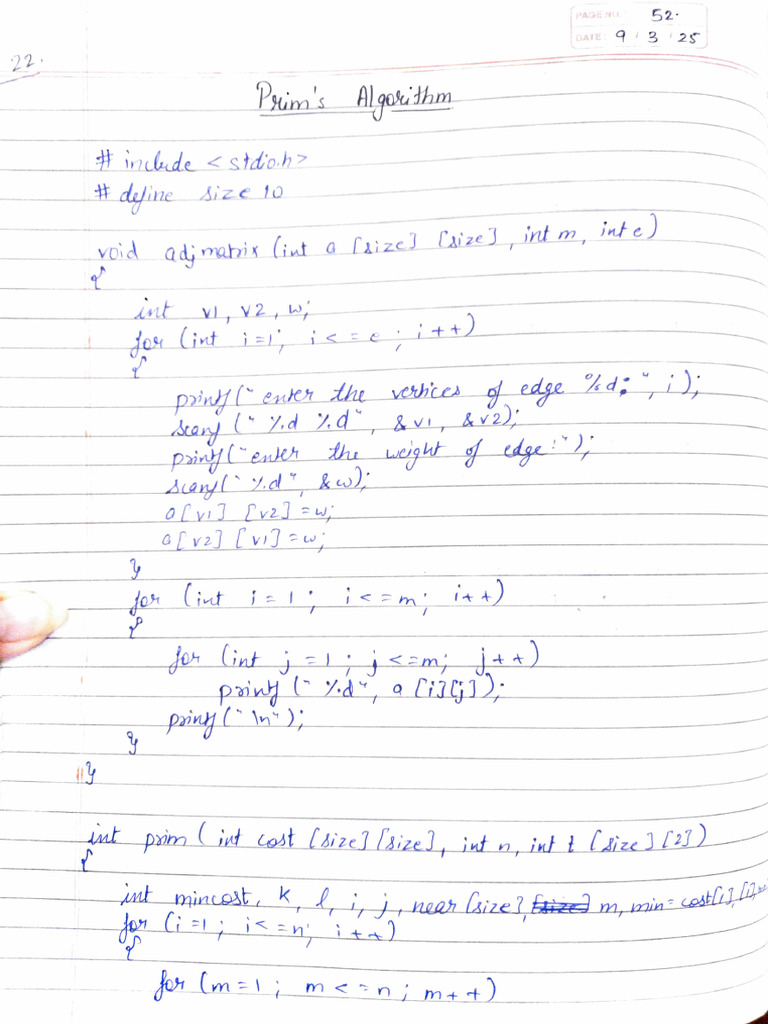 PAGE NO.: 52.
DATE: 9 / 3 / 25
22.
Prim's Algorithm
# include < stdio.h>
# define size 10
void adjmatrix (int a [size] [size], int m, int e)
{
int v1, v2, w;
for (int i=1; i<=e; i++)
{
printf(" enter the vertices of edge %d: ", i);
scanf (" %d %d", &v1, &v2);
printf("enter the weight of edge:");
scanf(" %d", &w);
a[v1] [v2] = w;
a[v2] [v1] = w;
}
for (int i = 1; i<=m; i++)
{
for (int j = 1; j <=m; j++)
printf (" %d", a [i][j]);
printf(" \n");
}
}
int prim ( int cost [size][size], int n, int t [size] [2])
{
int mincost, k, l, i, j, near [size], m, min = cost[i],
for (i=1; i<=n; i++)
{
for (m=1; m<=n; m++)